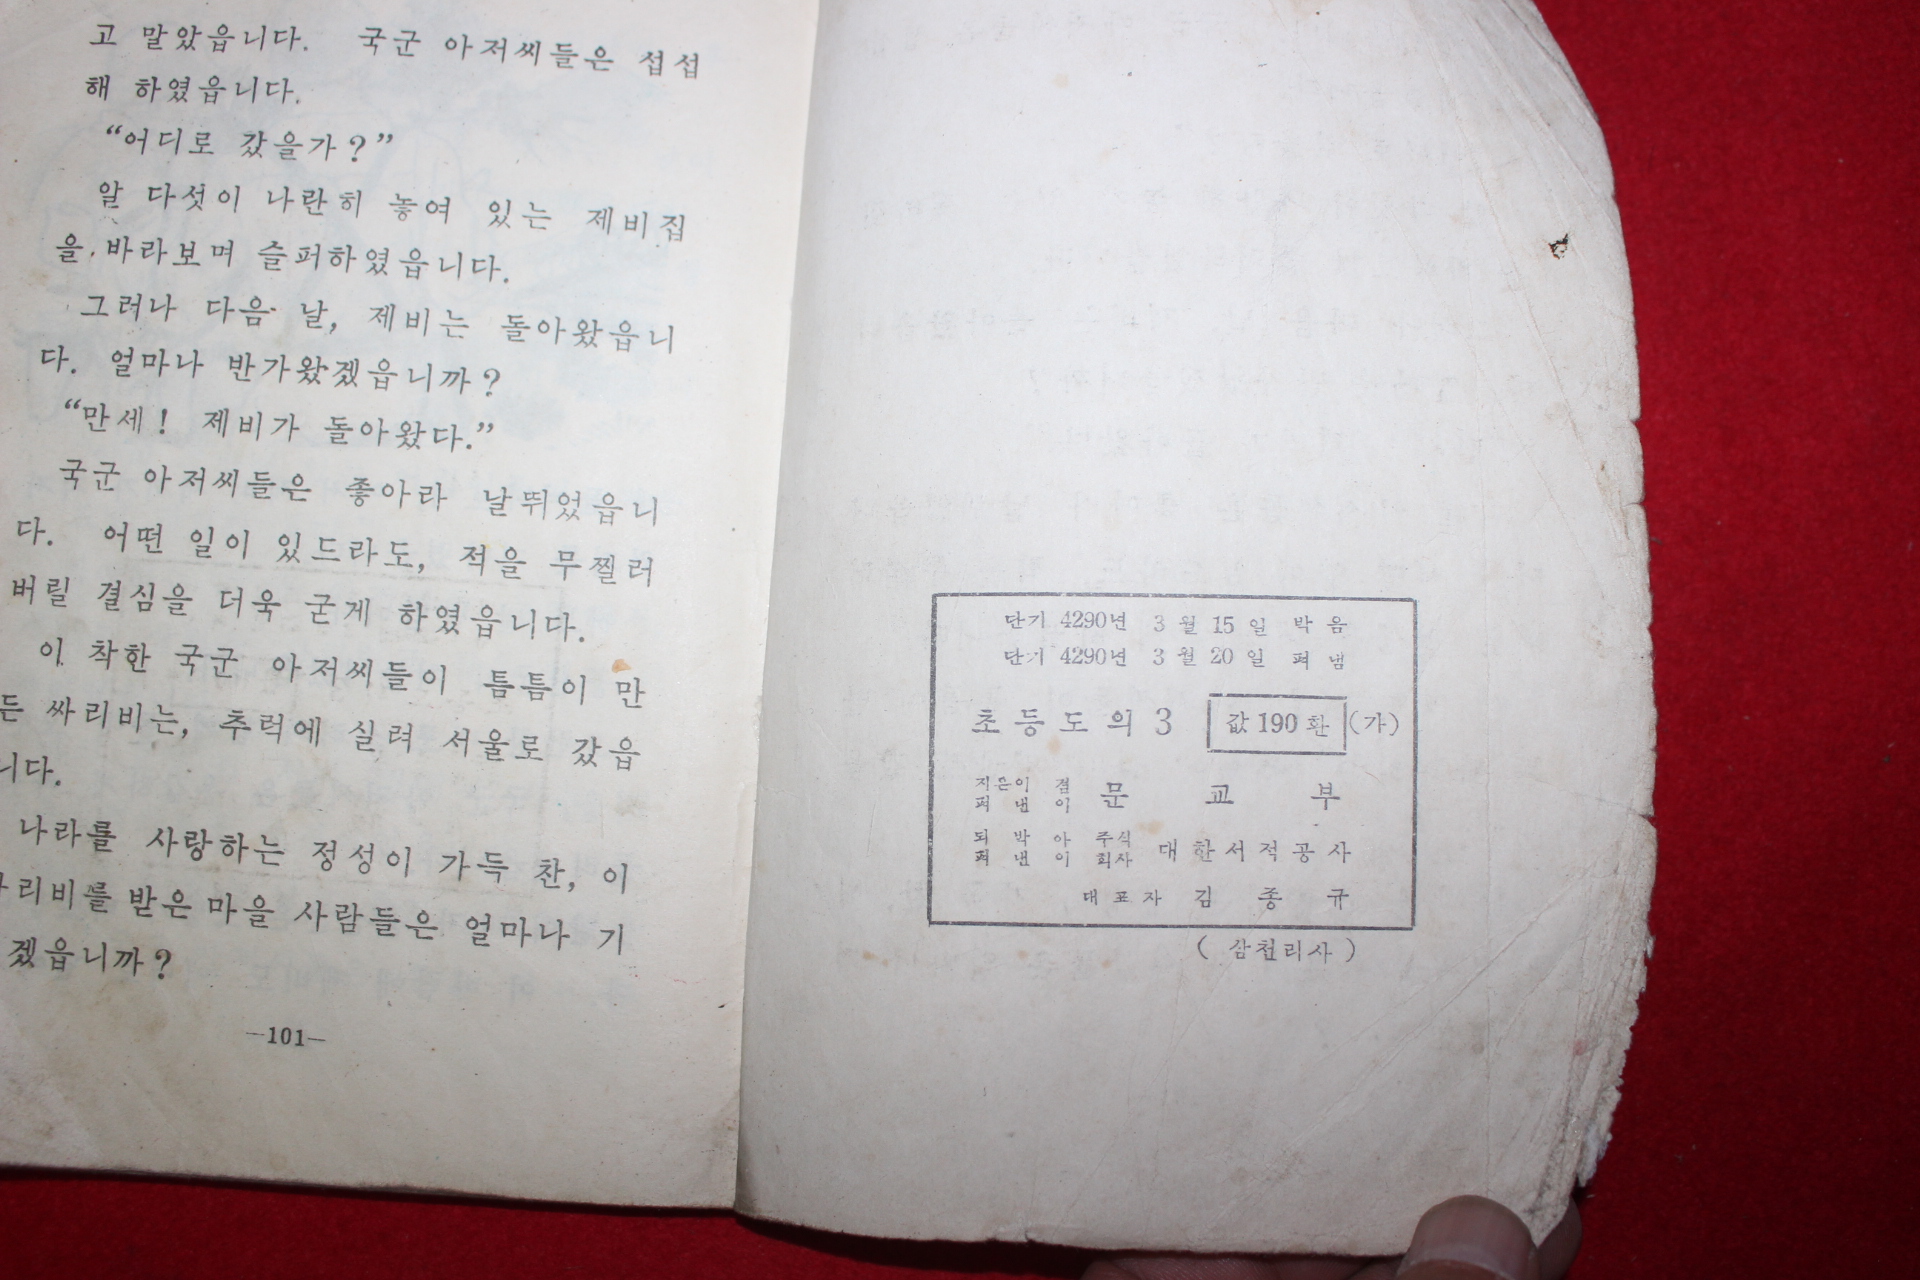 고 말았읍니다. 국군 아저씨들은 섭섭
해 하였읍니다.
“어디로 갔을가?”
알 다섯이 나란히 놓여 있는 제비집
을 바라보며 슬퍼하였읍니다.
그러나 다음 날, 제비는 돌아왔읍니
다. 얼마나 반가왔겠읍니까?
“만세! 제비가 돌아왔다.”
국군 아저씨들은 좋아라 날뛰었읍니
다. 어떤 일이 있드라도, 적을 무찔러
버릴 결심을 더욱 굳게 하였읍니다.
이 착한 국군 아저씨들이 틈틈이 만
든 싸리비는, 추럭에 실려 서울로 갔읍
니다.
나라를 사랑하는 정성이 가득 찬, 이
리비를 받은 마을 사람들은 얼마나 기
겠읍니까?
—101—
단기 4290년 3월 15일 박음
단기 4290년 3월 20일 펴냄
초등도의 3 값 190 환 (가)
지은이 겸 펴낸이 문교부
되박아 펴낸이 주식회사 대한서적공사
대표자 김종규
(삼천리사)